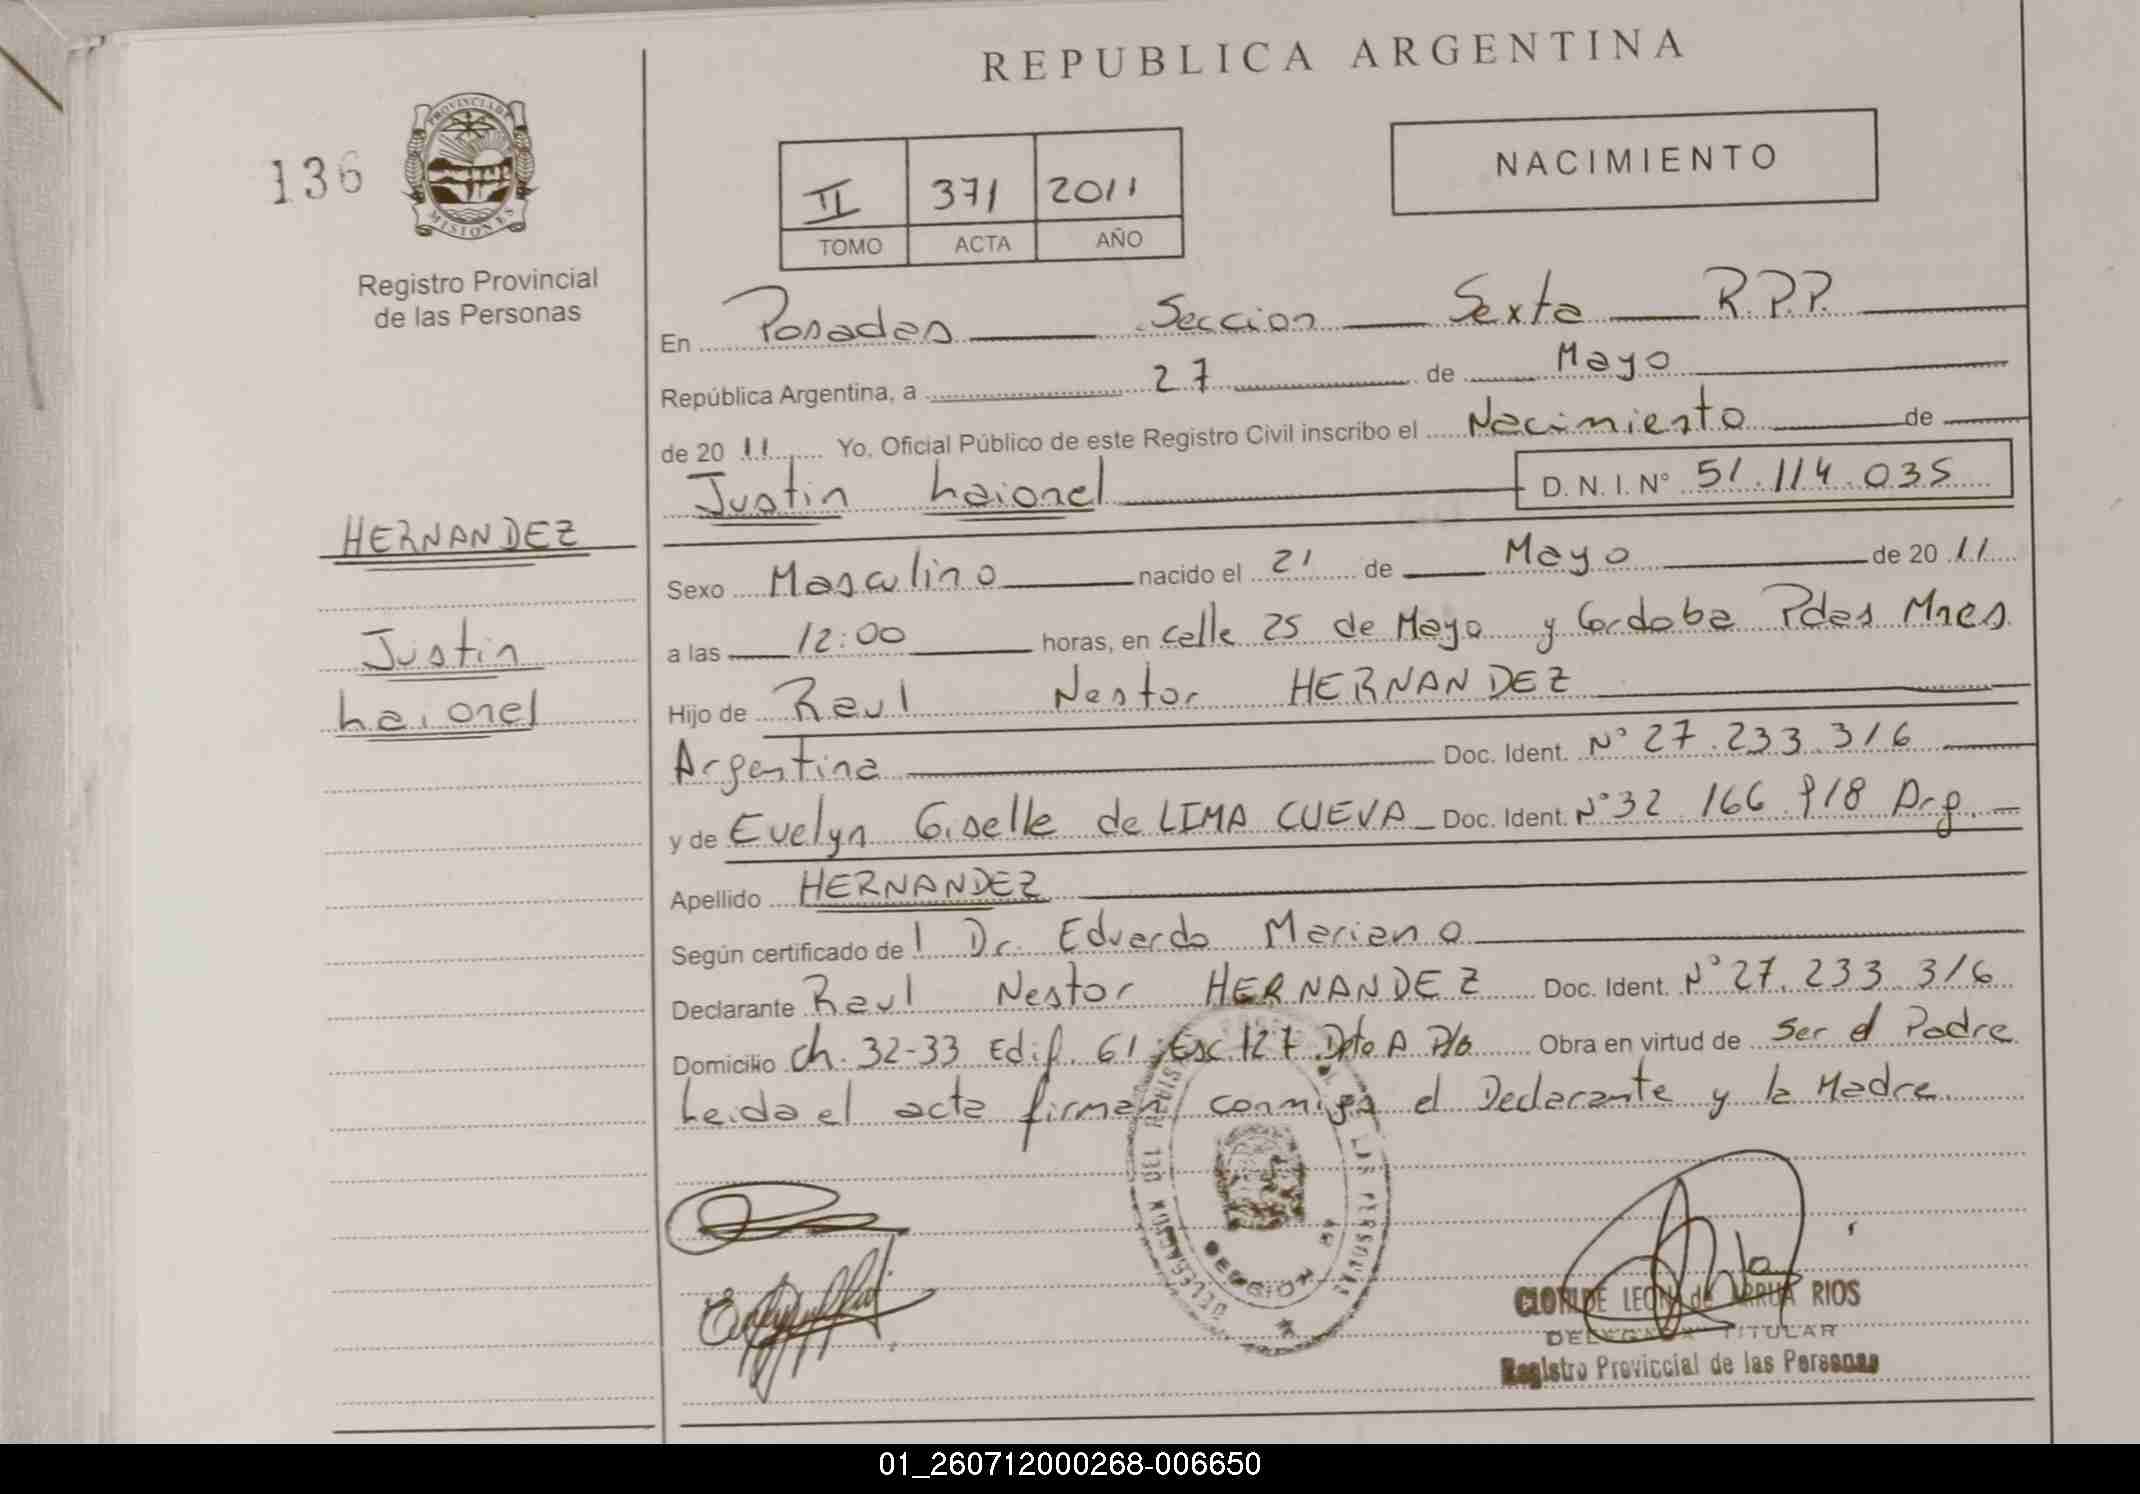 REPUBLICA ARGENTINA
136
PROVINCIA DE
MISIONES
Registro Provincial
de las Personas
II 371 2011
TOMO ACTA AÑO
NACIMIENTO
En Posadas Seccion Sexta R.P.P.
República Argentina, a 27 de Mayo
de 20 11 Yo, Oficial Público de este Registro Civil inscribo el Nacimiento de
Justin Laionel D.N.I. Nº 51.114.035
HERNANDEZ
Justin
Laionel
Sexo Masculino nacido el 21 de Mayo de 20 11
a las 12:00 horas, en calle 25 de Mayo y Cordoba Pdas Mnes
Hijo de Raul Nestor HERNANDEZ
Argentina Doc. Ident. Nº 27.233.316
y de Evelyn Giselle de LIMA CUEVA Doc. Ident. Nº 32.166.918 Arg.
Apellido HERNANDEZ
Según certificado de l Dr. Eduardo Mariano
Declarante Raul Nestor HERNANDEZ Doc. Ident. Nº 27.233.316
Domicilio ch. 32-33 Edif. 61 Esc 127 Dpto A Obra en virtud de Ser el Padre
Leida el acta firman conmigo el Declarante y la Madre
DE LAS PERSONAS
LEON de ARRUA RIOS
DELEGADA TITULAR
Registro Provincial de las Personas
01_260712000268-006650